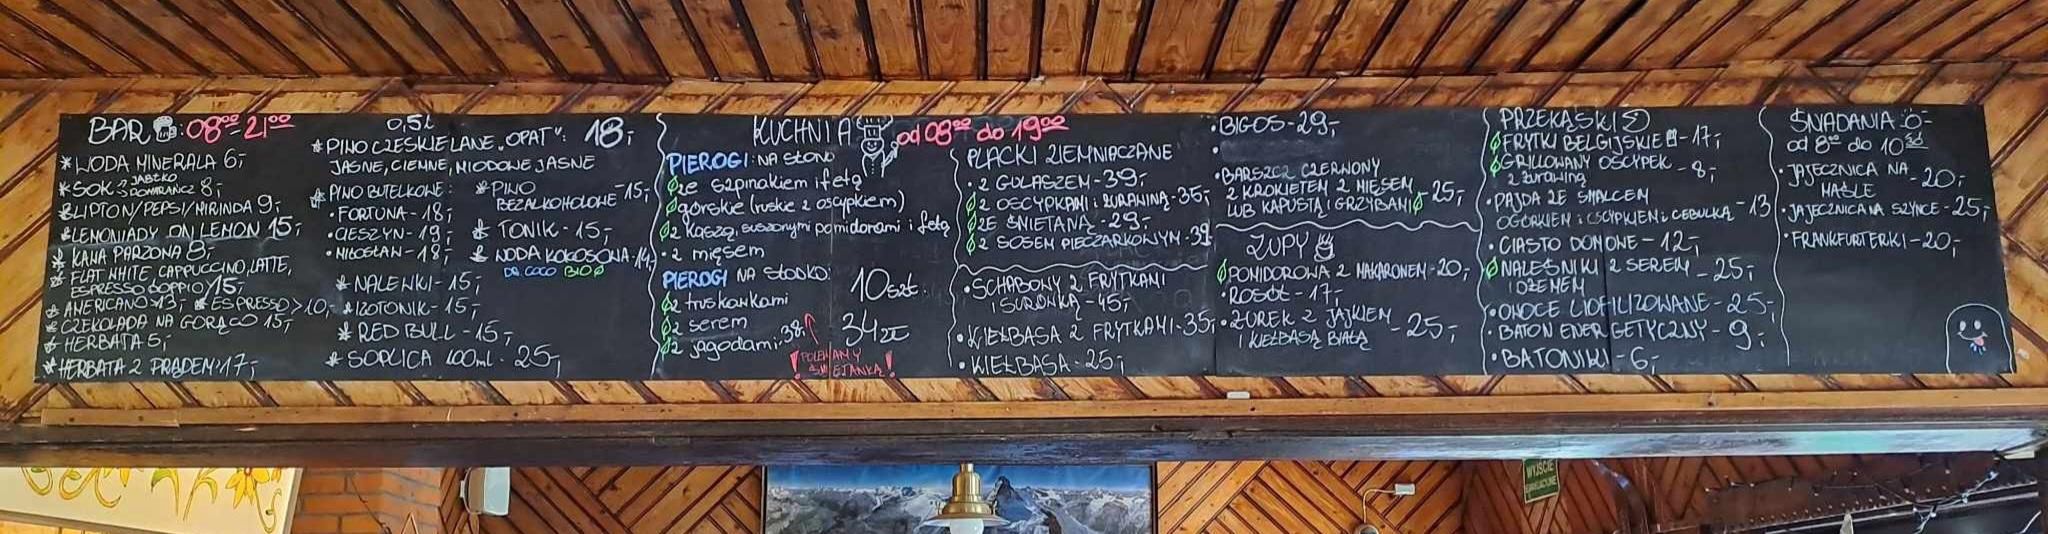 BAR : 08⁰⁰-21⁰⁰
* WODA MINERALA 6,-
* SOK → JABŁKO
→ POMARAŃCZ 8,-
* LIPTON/PEPSI/MIRINDA 9,-
* LEMONIADY ON LEMON 15,-
* KAWA PARZONA 8,-
* FLAT WHITE, CAPPUCCINO, LATTE,
ESPRESSO DOPPIO 15,-
* AMERICANO > 13,- * ESPRESSO > 10,-
* CZEKOLADA NA GORĄCO 15,-
* HERBATA 5,-
* HERBATA Z PRĄDEM > 17,-
0,5L
* PIWO CZESKIE LANE "OPAT": 18,-
JASNE, CIEMNE, MIODOWE JASNE
* PIWO BUTELKOWE:
• FORTUNA - 18,-
• CIESZYN - 19,-
• MIŁOSŁAW - 18,-
* NALEWKI - 15,-
* IZOTONIK - 15,-
* RED BULL - 15,-
* SOPLICA 100ml - 25,-
* PIWO
BEZALKOHOLOWE - 15,-
* TONIK - 15,-
* WODA KOKOSOWA - 14,-
DR COCO BIO
KUCHNIA od 08⁰⁰ do 19⁰⁰
PIEROGI: NA SŁONO
ze szpinakiem i fetą
górskie (ruskie z oscypkiem)
z kaszą, suszonymi pomidorami i fetą
• z mięsem
PIEROGI NA SŁODKO:
z truskawkami
z serem
z jagodami - 38,-
10 szt.
34 zł
! POLEWAMY
ŚMIETANKĄ !
PLACKI ZIEMNIACZANE
• Z GULASZEM - 39,-
Z OSCYPKAMI i ŻURAWINĄ - 35,-
ZE ŚMIETANĄ - 29,-
Z SOSEM PIECZARKOWYM - 39
• SCHABOWY Z FRYTKAMI
i SURÓWKĄ - 45,-
• KIEŁBASA Z FRYTKAMI - 35,-
• KIEŁBASA - 25,-
• BIGOS - 29,-
• BARSZCZ CZERWONY
Z KROKIETEM Z MIĘSEM
LUB KAPUSTĄ i GRZYBAMI - 25,-
ZUPY
POMIDOROWA Z MAKARONEM - 20,-
• ROSÓŁ - 17,-
• ŻUREK Z JAJKIEM
i KIEŁBASĄ BIAŁĄ - 25,-
PRZEKĄSKI
FRYTKI BELGIJSKIE - 17,-
GRILLOWANY OSCYPEK
Z żurawiną - 8,-
• PAJDA ZE SMALCEM
OGÓRKIEM i OSCYPKIEM i CEBULKĄ - 13
• CIASTO DOMOWE - 12,-
NALEŚNIKI Z SEREM
i DŻEMEM - 25,-
• OWOCE LIOFILIZOWANE - 25,-
• BATON ENERGETYCZNY - 9,-
• BATONIKI - 6,-
ŚNIADANIA
od 8⁰⁰ do 10³⁰
• JAJECZNICA NA
MAŚLE - 20,-
• JAJECZNICA NA SZYNCE - 25,-
• FRANKFURTERKI - 20,-
WYJŚCIE
EWAKUACYJNE